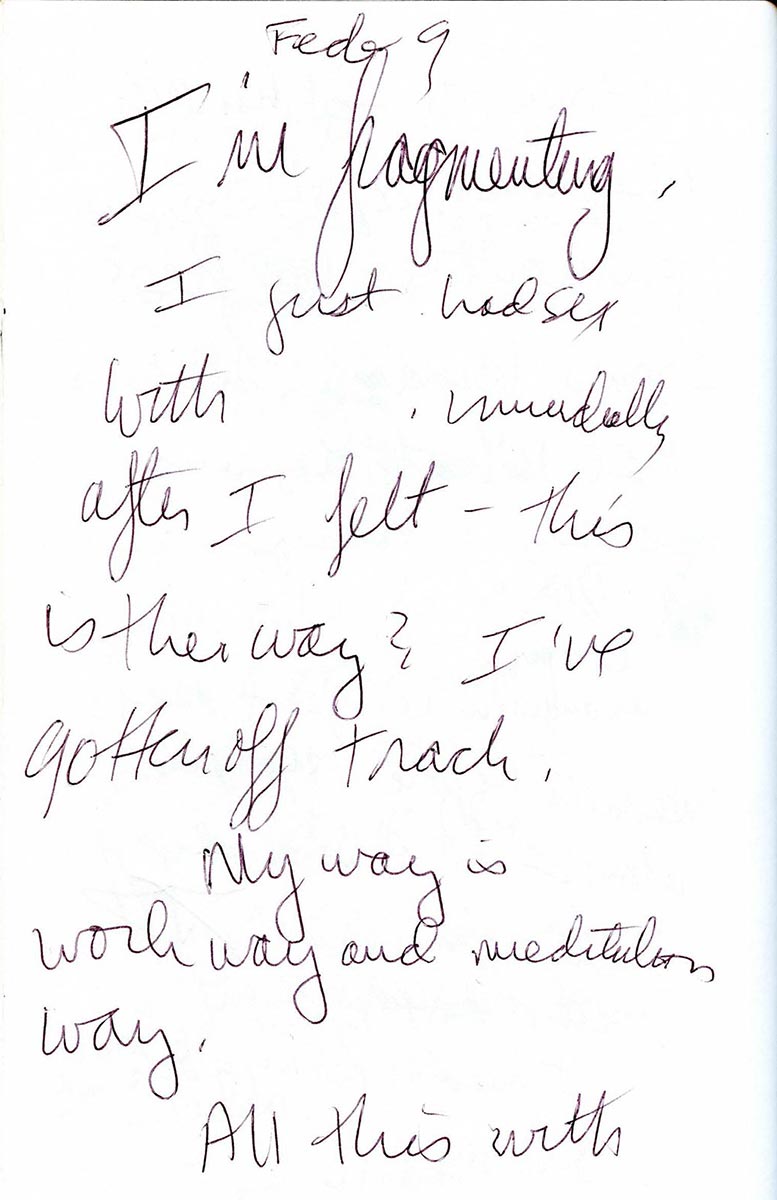 Feb 9
I'm fragmenting.
I just had sex
with . immediately
after I felt – this
is their way? I've
gotten off track.
My way is
work way and meditation
way.
All this with